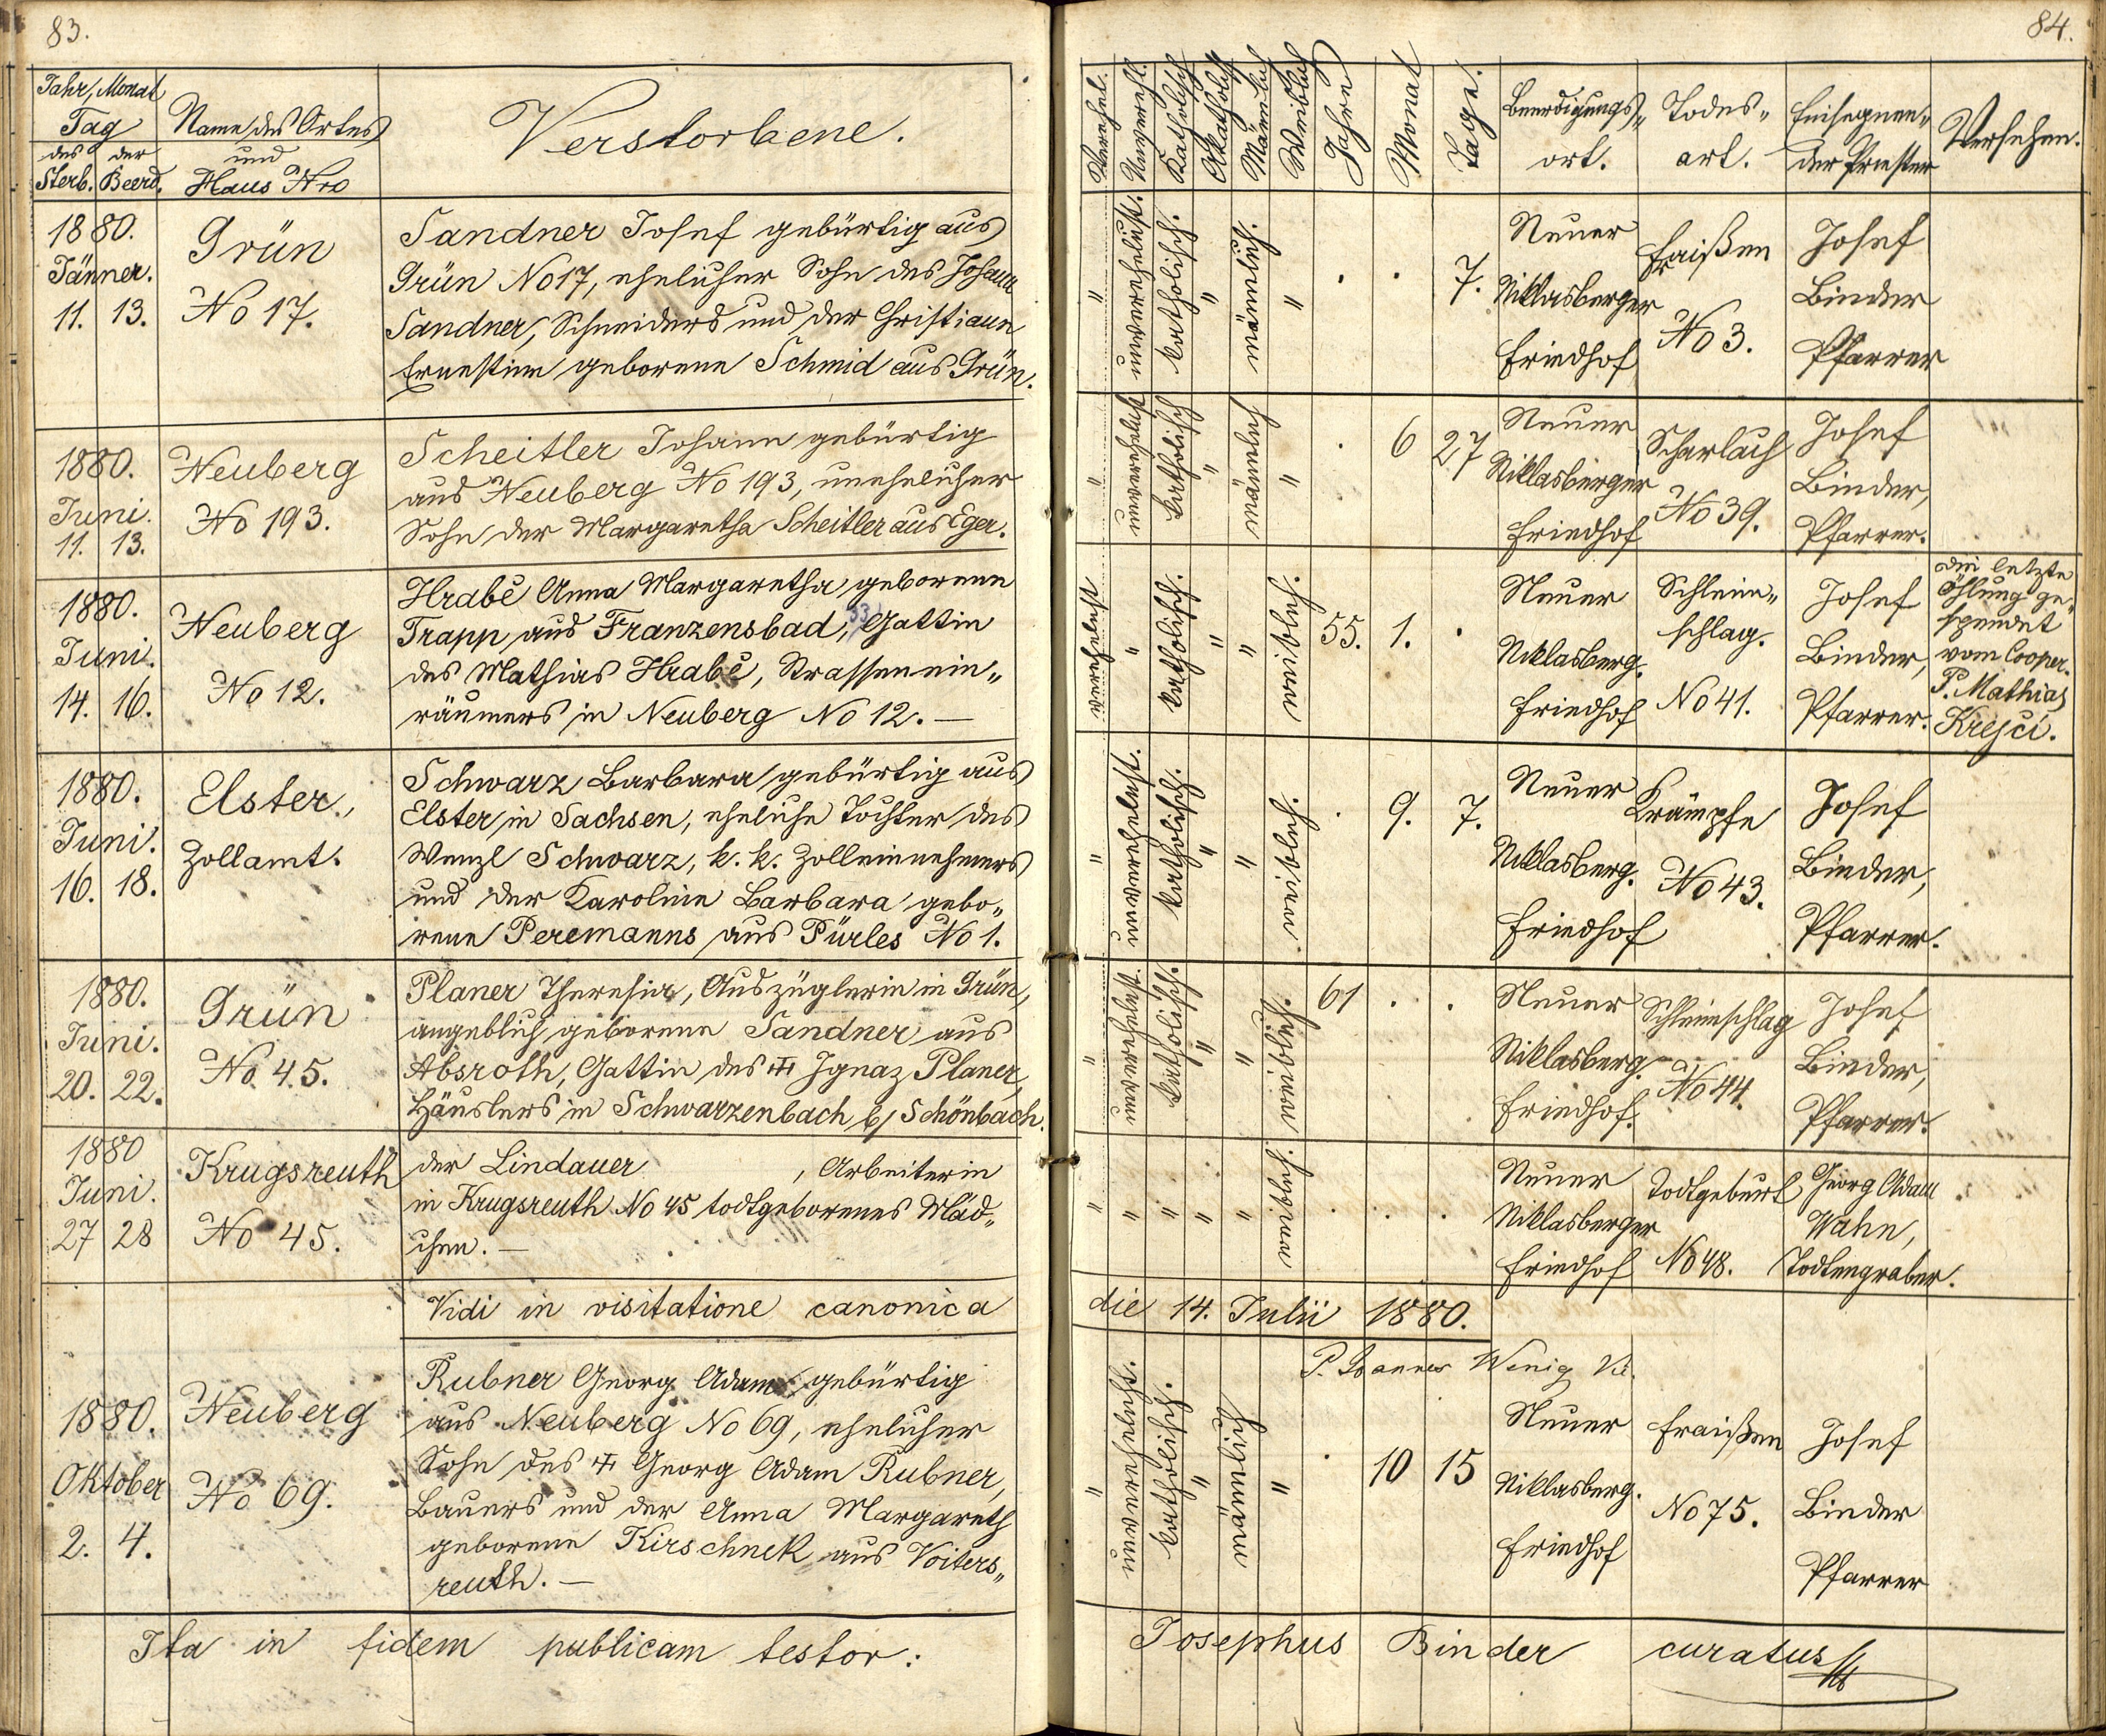 83.
Jahr, Monat
Tag
des der
Sterb. Beerd.
Name des Ortes
und
Haus Nro
Verstorbene.
1880.
Jänner.
11. 13.
Grün
No 17.
Sandner Josef gebürtig aus
Grün No 17, ehelicher Sohn des Johann
Sandner, Schneiders und der Christiann
Ernestine geborenen Schmid aus Grün.
1880.
Juni.
11. 13.
Neuberg
No 193.
Scheitler Johann gebürtig
aus Neuberg No 193, unehelicher
Sohn der Margaretha Scheitler aus Eger.
1880.
Juni.
14. 16.
Neuberg
No 12.
Hrabě Anna Margaretha geborene
Trapp aus Franzensbad, Gattin
des Mathias Hrabě, Strassenein„
räumers in Neuberg No 12. —
1880.
Juni.
16. 18.
Elster,
Zollamt.
Schwarz Barbara gebürtig aus
Elster in Sachsen, eheliche Tochter des
Wenzl Schwarz, k. k. Zolleinnehmers
und der Karoline Barbara gebo„
renen Peremanns aus Pürles No 1.
1880.
Juni.
20. 22.
Grün
No 45.
Planer Theresia, Auszüglerin in Grün,
angeblich geborene Sandner aus
Absroth, Gattin des ✝ Ignaz Planer,
Häuslers in Schwarzenbach b/ Schönbach.
1880
Juni.
27 28
Krugsreuth
No 45.
der Lindauer , Arbeiterin
in Krugsreuth No 45 todtgeborenes Mäd„
chen. —
Vidi in visitatione canonica
1880.
Oktober
2. 4.
Neuberg
No 69.
Rubner Georg Adam gebürtig
aus Neuberg No 69, ehelicher
Sohn des ✝ Georg Adam Rubner,
Bauers und der Anna Margareth
geborenen Kirschnek aus Voiters„
reuth. —
Ita in fidem publicam testor:
84.
Verehel.
Unverehl.
Katholisch
Akatholisch
Männlich
Weiblich
Jahre
Monat
Tage.
Beerdigungs„
ort.
Todes„
art.
Einsegnen„
der Priester
Versehen.
" unverehelicht. katholisch. " männlich. " . . 7.
Neuer
Niklasberger
Friedhof
Fraißen
No 3.
Josef
Binder
Pfarrer
" unverehelicht katholisch " männlich " . 6 27
Neuer
Niklasberger
Friedhof
Scharlach
No 39.
Josef
Binder,
Pfarrer.
verehelicht " katholisch. " " weiblich. 55. 1. .
Neuer
Niklasberg.
Friedhof
Schleim„
schlag.
No 41.
Josef
Binder,
Pfarrer.
die letzte
Öhlung ge„
spendet
vom Cooper.
P. Mathias
Krejci.
" unverehelicht. katholisch. " " weiblich. . 9. 7.
Neuer
Niklasberg.
Friedhof
Krämpfe
No 43.
Josef
Binder,
Pfarrer.
" unverehelicht. katholisch. " " weiblich. 61 . .
Neuer
Niklasberg.
Friedhof.
Schleimschlag
No 44.
Josef
Binder,
Pfarrer.
" " " " " weiblich. . . .
Neuer
Niklasberger
Friedhof
Todtgeburt
No 48.
Georg Adam
Wahn,
Todtengraber.
die 14. Julii 1880.
P. Joannes Wenig
" unverehelicht. katholisch. " männlich " . 10 15
Neuer
Niklasberg.
Friedhof
Fraißen
No 75.
Josef
Binder
Pfarrer
Josephus Binder curatus